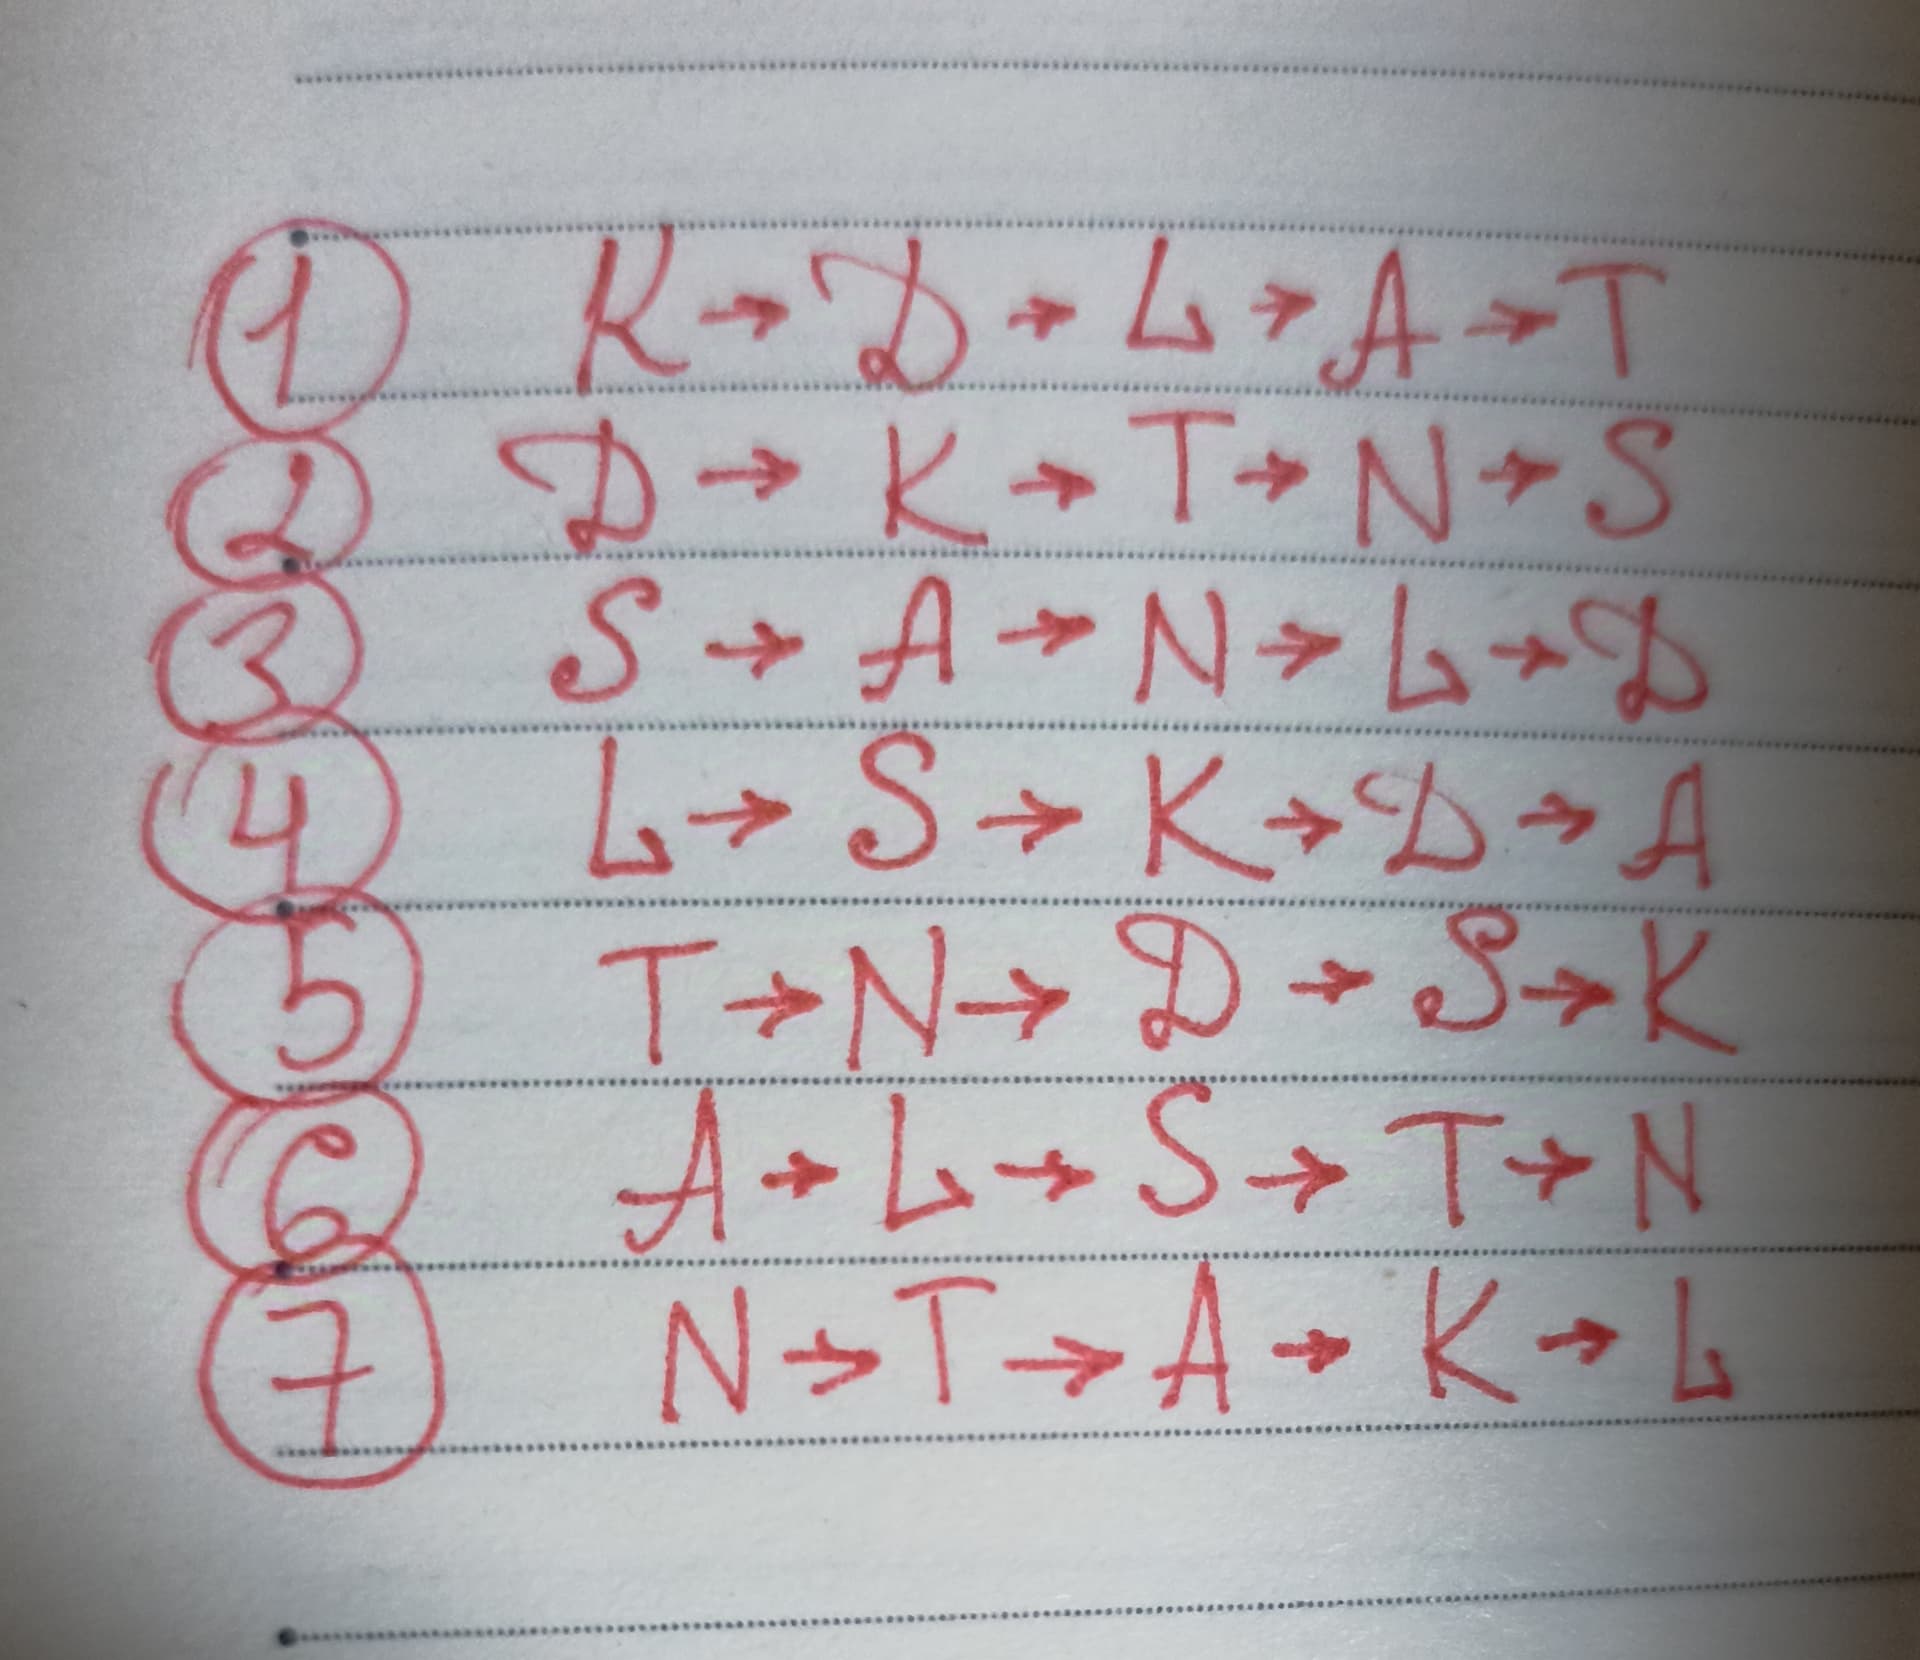 1 K → D → L → A → T
2 D → K → T → N → S
3 S → A → N → L → D
4 L → S → K → D → A
5 T → N → D → S → K
6 A → L → S → T → N
7 N → T → A → K → L